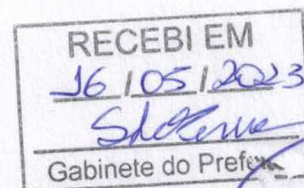 RECEBI EM
16 / 05 / 2023
Gabinete do Prefe